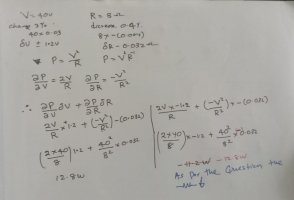 V = 40V R = 8 Ω
change 3%. decrease 0.4%
40 × 0.03 8 × -(0.004)
δV ± 1.2V δR = 0.032 Ω
* P = V²/R P = V²R⁻¹
∂P/∂V = 2V/R ∂P/∂R = -V²/R²
∴ ∂P/∂V δV + ∂P/∂R δR
2V/R × 1.2 + (-V²/R²) × -(0.032)
(2×40/8) 1.2 + 40²/8² × 0.032
12.8 W
2V × -1.2/R + (-V²/R²) × -(0.032)
(2×40/8) × -1.2 + 40²/8² × 0.032
-12.8 W
As per the Question the